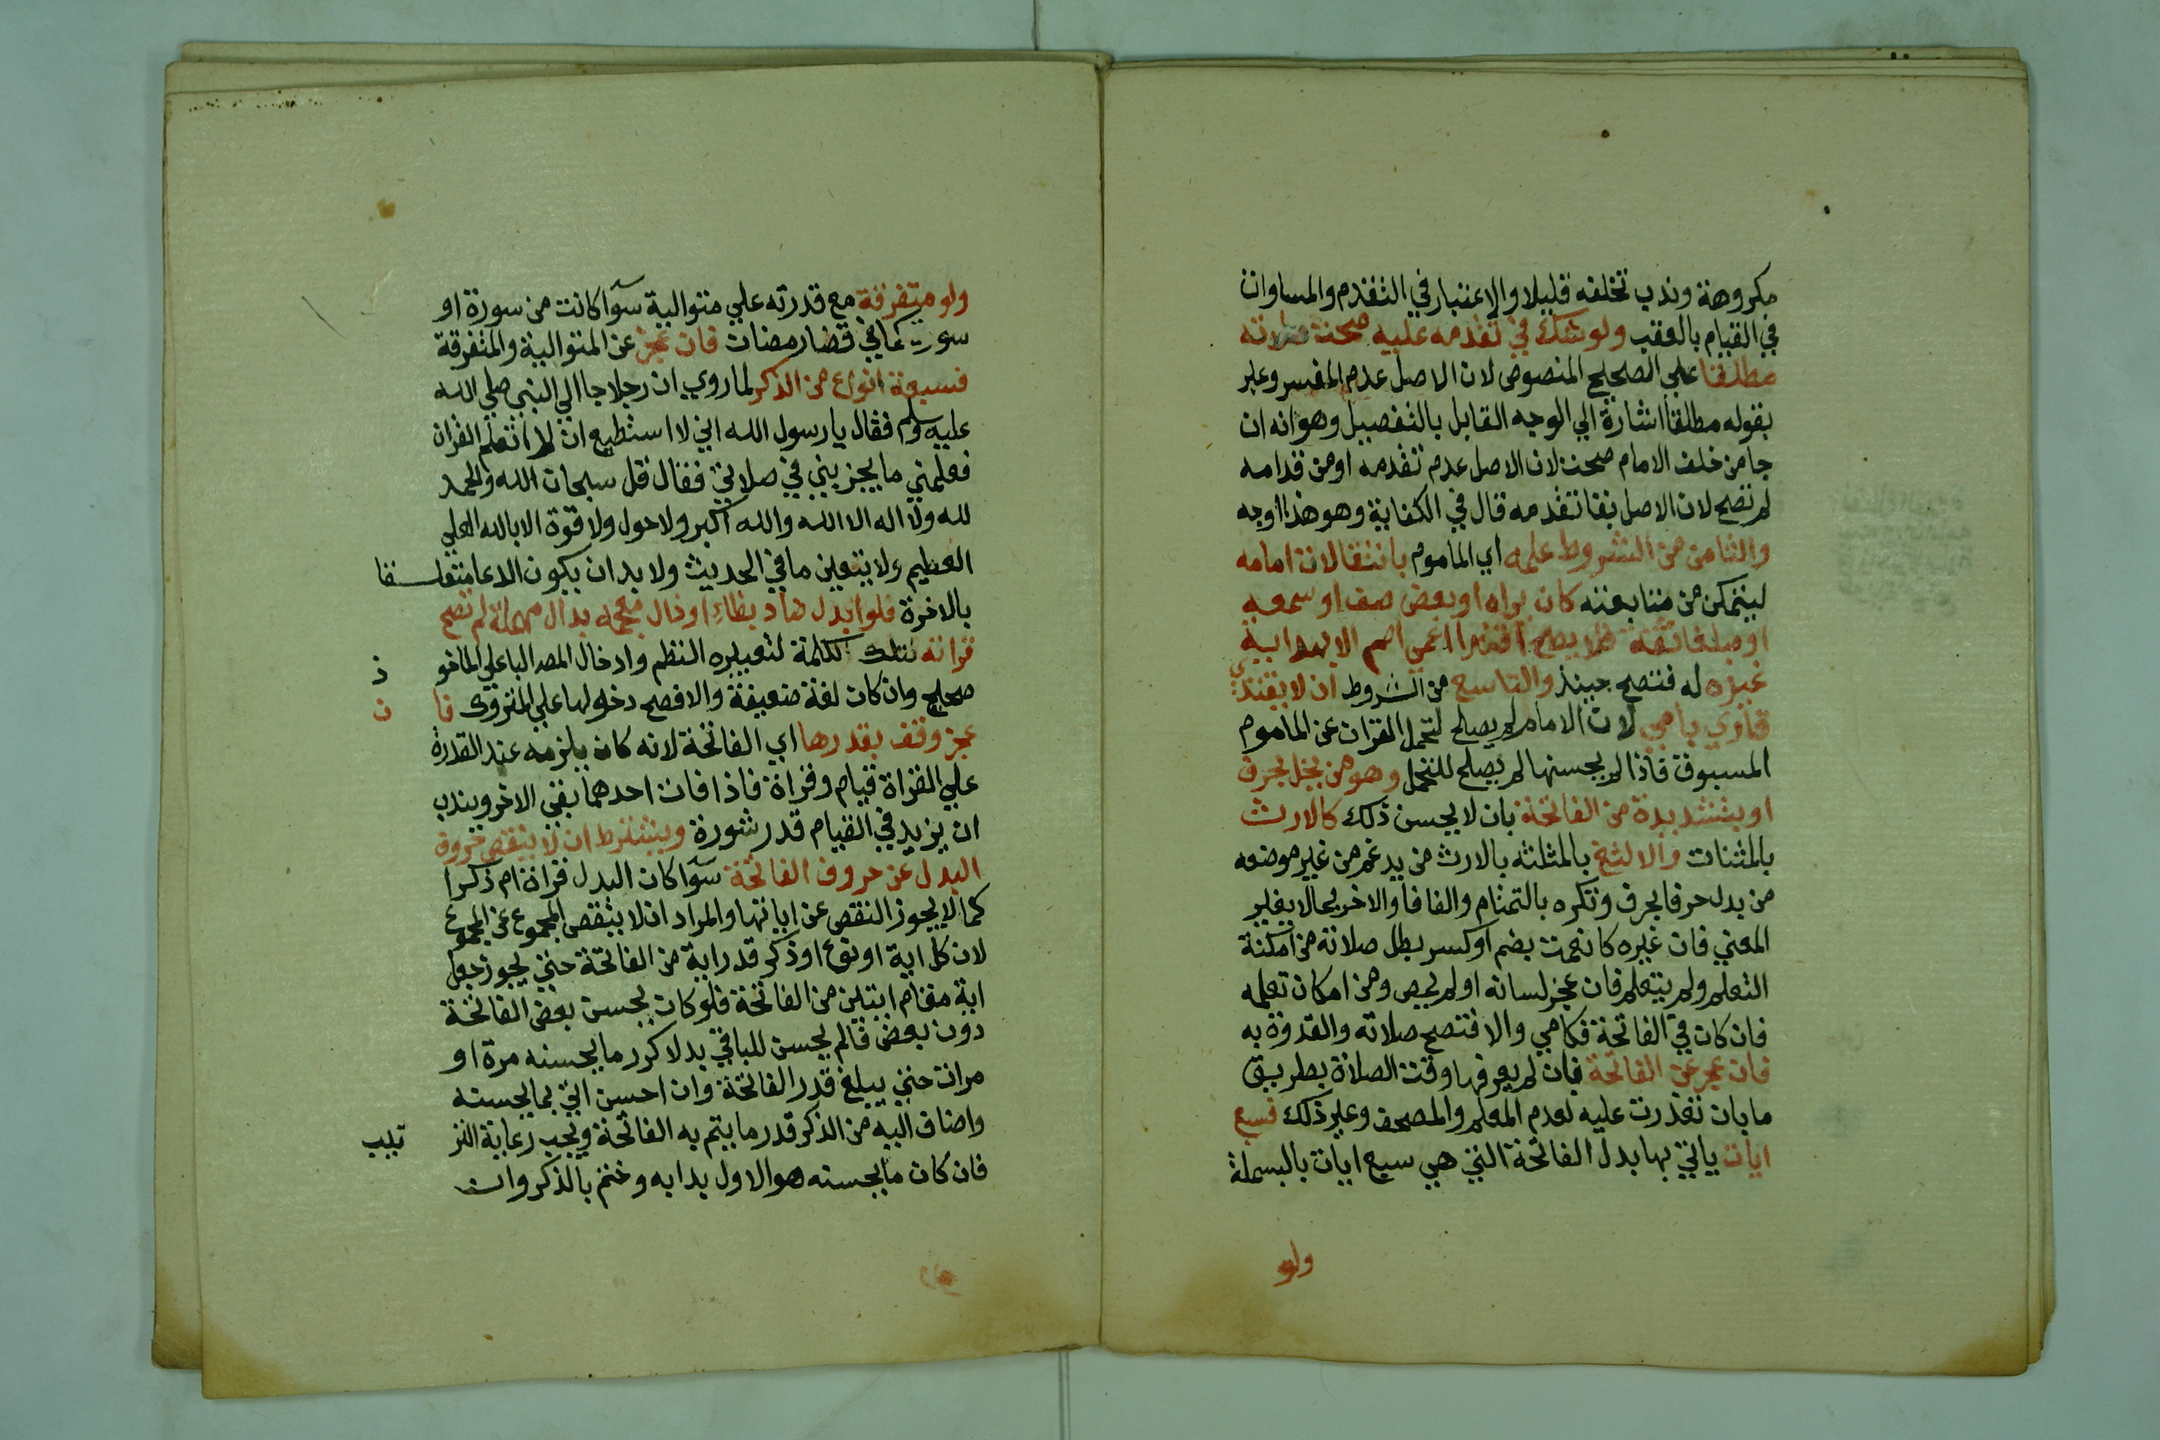 مكروهة وندب تخلفه قليلا والاعتبار في التقدم والمساوات
في القيام بالعقب ولو شك في تقدمه عليه صحت صلاته
مطلقا علي الصحيح المنصوص لان الاصل عدم المفسر وعبر
بقوله مطلقا اشارة الي الوجه القايل بالتفصيل وهو انه ان
جا من خلف الامام صحت لان الاصل عدم تقدمه او من قدامه
لم تصح لان الاصل بقا تقدمه قال في الكفاية وهو هذا اوجه
والثامن من الشروط علمه اي الماموم بانتقالات امامه
ليتمكن من متابعته كان يراه او بعض صف او سمعه
او مبلغا ثقة فلا يصح اقتدا اعمي اصم الا بهداية
غيره له فتصح حينذ والتاسع من الشروط ان لا يقتدي
قاري بامي لان الامام لم يصلح لتحمل القران عن الماموم
المسبوق فاذا لم يحسنها لم يصلح للتحمل وهو من يخل بحرف
او بتشديدة من الفاتحة بان لا يحسن ذلك كالارت
بالمثنات والالثغ بالمثلثه بالارث من يدغم من غير موضعه
من يدل حرفا بحرف وتكره بالتمتام والفافا والاخر بحالا يغير
المعني فان غيره كانعمت بضم او كسر بطل صلاته من امكنة
التعلم ولم يتعلم فان عجز لسانه او لم يحص ومن امكان تعلمه
فان كان في الفاتحة فكامي والا فتصح صلاته والقدوة به
فان عجز عن الفاتحة فان لم يعرفها وقت الصلاة بطريق
ما بان تعذرت عليه لعدم المعلم والمصحف وغير ذلك فسبع
ايات ياتي بها بدل الفاتحة التي هي سبع ايات بالبسملة
ولو
ولو متفرقة مع قدرته علي متوالية سوآ كانت من سورة او
سور كما في قضا رمضات فان عجز عن المتوالية والمتفرقة
فسبعة انواع من الذكر لما روي ان رجلا جا الي النبي صلي الله
عليه وسلم فقال يا رسول الله اني لا استطيع ان لا اتعلم القران
فعلمني ما يجزيني في صلاتي فقال قل سبحات الله والحمد
لله ولا اله الا الله والله اكبر ولا حول ولا قوة الا بالله العلي
العظيم ولا يتعين ما في الحديث ولا بد ان يكون الدعا متعلقا
بالاخرة فلو ابدل ضاد بظاء او ذال معجمه بدال مهملة لم تصح
قراته لتلك الكلمة لتغييره النظم وادخال المصـ البا علي الماخو ذ
صحيح وان كات لغة ضعيفة والافصح دخولها علي المتروك فا ن
عجز وقف بقدرها اي الفاتحة لانه كان يلزمه عند القدرة
علي القراة قيام وقراة فاذا فات احدهما بقي الاخر ويندب
ان يزيد في القيام قدر سورة ويشترط ان لا ينقص حروف
البدل عن حروف الفاتحة سوآ كان البدل قراة ام ذكرا
كما لا يجوز النقص عن اياتها والمراد ان لا ينقص المجموع عن المجموع
لان كل اية او نوع او ذكر قدر اية من الفاتحة حتي يجوز جعل
اية مقام ايتين من الفاتحة فلو كات يحسن بعض الفاتحة
دون بعض فالم يحسن للباقي بدلا كرر ما يحسنه مرة او
مرات حتي يبلغ قدر الفاتحة وان احسن اتي بما يحسنه
واضاف اليه من الذكر قدر ما يتم به الفاتحة ويجب رعاية التر تيب
فان كان ما يحسنه هو الاول بدا به وختم بالذكر وان